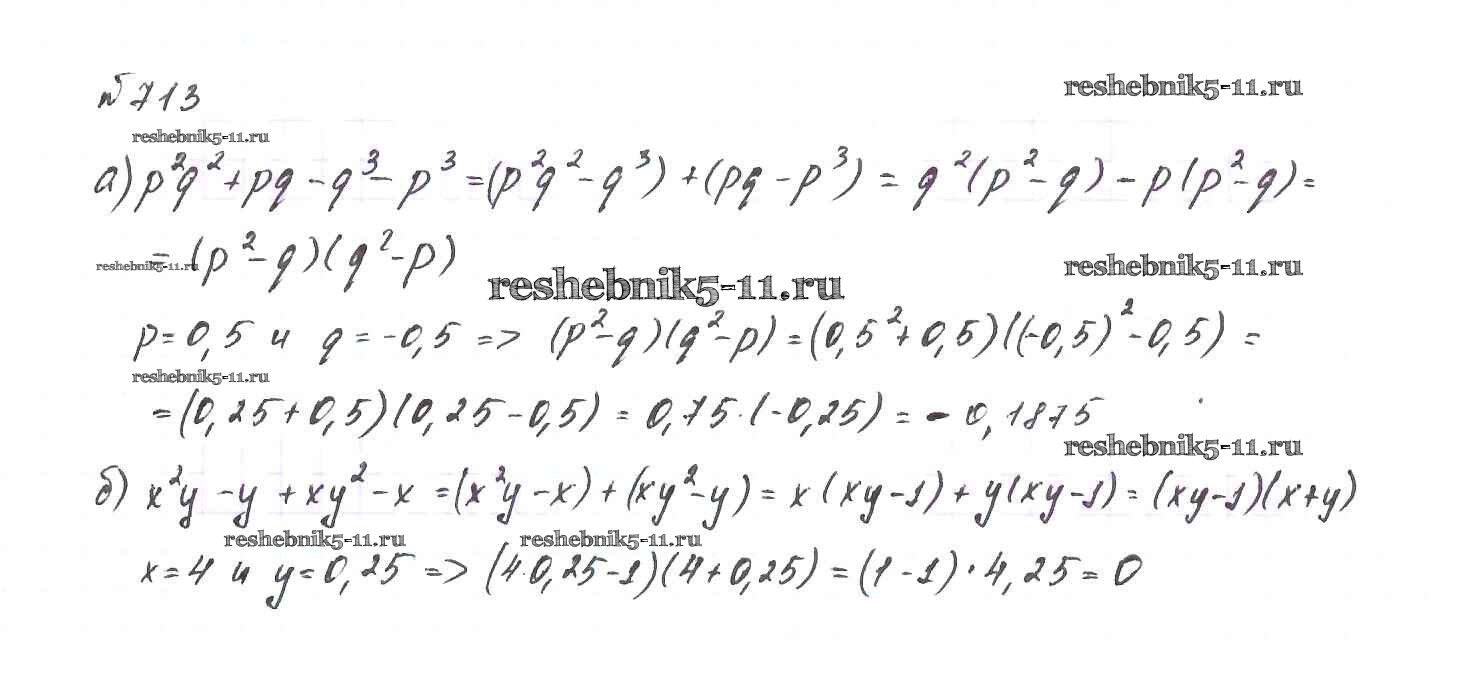 № 713
reshebnik5-11.ru
reshebnik5-11.ru
а) p²q² + pq - q³ - p³ = (p²q² - q³) + (pq - p³) = q²(p² - q) - p(p² - q) =
= (p² - q)(q² - p)
reshebnik5-11.ru
reshebnik5-11.ru
reshebnik5-11.ru
p = 0,5 и q = -0,5 => (p² - q)(q² - p) = (0,5² + 0,5)((-0,5)² - 0,5) =
reshebnik5-11.ru
= (0,25 + 0,5)(0,25 - 0,5) = 0,75 · (-0,25) = - 0,1875
reshebnik5-11.ru
б) x²y - y + xy² - x = (x²y - x) + (xy² - y) = x(xy - 1) + y(xy - 1) = (xy - 1)(x + y)
reshebnik5-11.ru
reshebnik5-11.ru
x = 4 и y = 0,25 => (4·0,25 - 1)(4 + 0,25) = (1 - 1) · 4,25 = 0